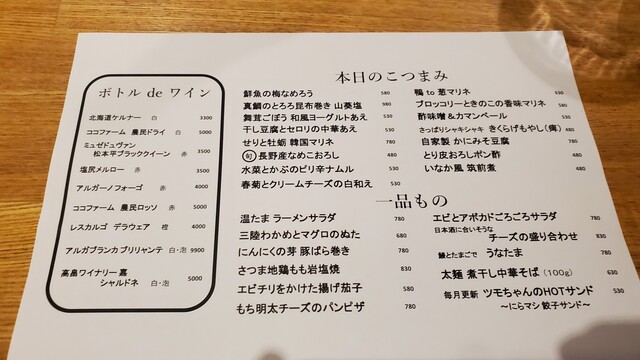 ボトル de ワイン
北海道ケルナー 白 3300
ココファーム 農民ドライ 白 5000
ミュゼドュヴァン
松本平ブラッククイーン 赤 3500
塩尻メルロー 赤 3500
アルガーノフォーゴ 赤 4000
ココファーム 農民ロッソ 赤 5000
レスカルゴ デラウェア 橙 4000
アルガブランカ ブリリャンテ 白・泡 9900
高畠ワイナリー 嘉
シャルドネ 白・泡 5000
本日のこつまみ
鮮魚の梅なめろう 580
真鯛のとろろ昆布巻き 山葵塩 980
舞茸ごぼう 和風ヨーグルトあえ 530
干し豆腐とセロリの中華あえ 530
せりと牡蛎 韓国マリネ 780
旬 長野産なめこおろし 480
水菜とかぶのピリ辛ナムル 530
春菊とクリームチーズの白和え 530
鴨 to 葱マリネ 630
ブロッコリーときのこの香味マリネ 580
酢味噌&カマンベール 530
さっぱりシャキシャキ きくらげもやし(痺) 480
自家製 かにみそ豆腐 780
とり皮おろしポン酢 480
いなか風 筑前煮 480
一品もの
温たま ラーメンサラダ 780
三陸わかめとマグロのぬた 680
にんにくの芽 豚ばら巻き 780
さつま地鶏もも岩塩焼 830
エビチリをかけた揚げ茄子 580
もち明太チーズのパンピザ 780
エビとアボカドごろごろサラダ 780
日本酒に合いそうな
チーズの盛り合わせ 830
鰻とたまごで うなたま 780
太麺 煮干し中華そば (100g) 630
毎月更新 ツモちゃんのHOTサンド 530
～にらマシ 餃子サンド～